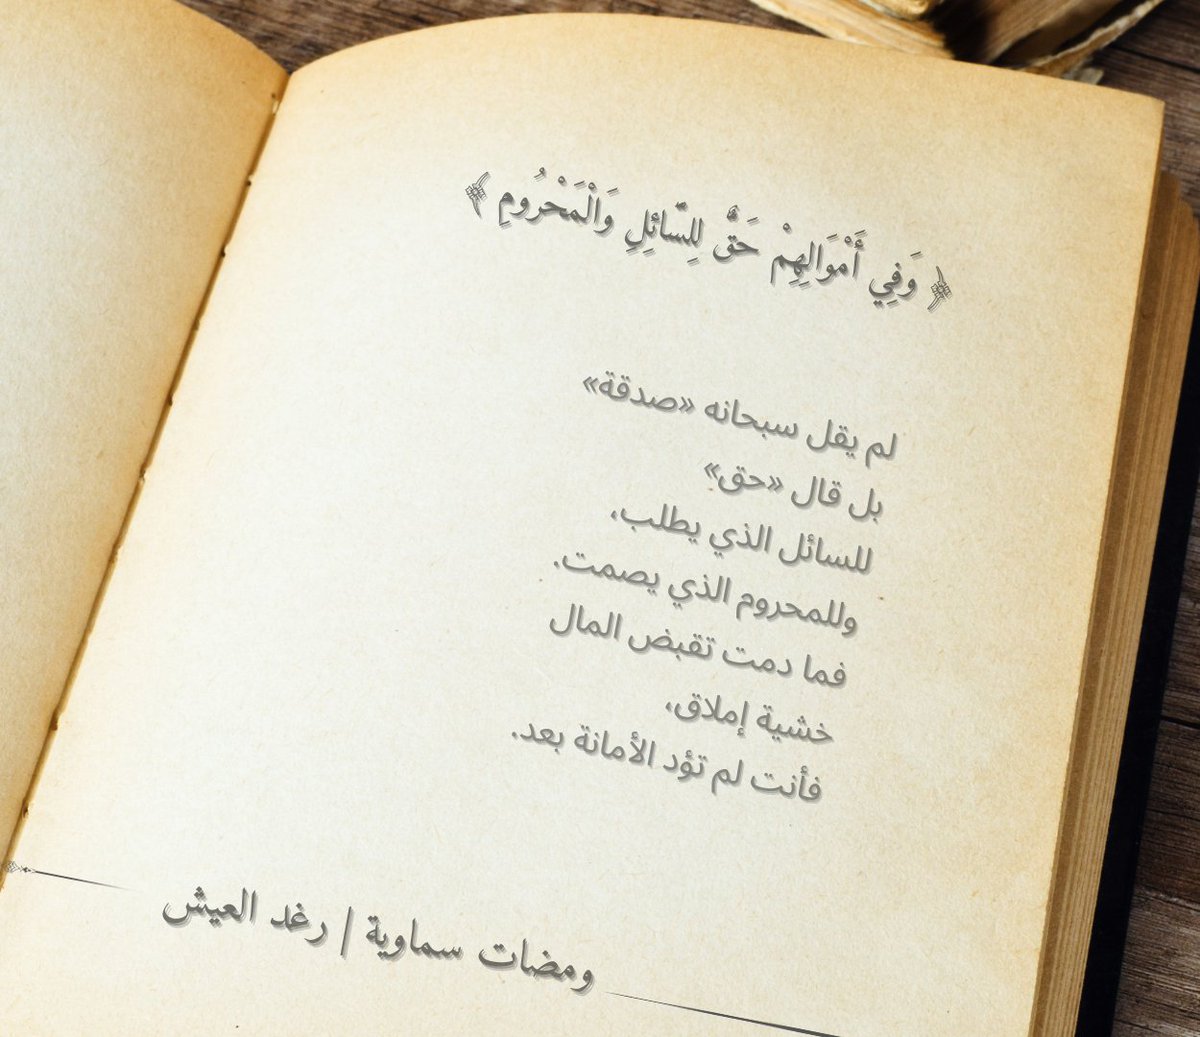 ﴿ وَفِي أَمْوَالِهِمْ حَقٌّ لِلسَّائِلِ وَالْمَحْرُومِ ﴾
لم يقل سبحانه «صدقة»
بل قال «حق»
للسائل الذي يطلب،
وللمحروم الذي يصمت.
فما دمت تقبض المال
خشية إملاق،
فأنت لم تؤد الأمانة بعد.
ومضات سماوية | رغد العيش